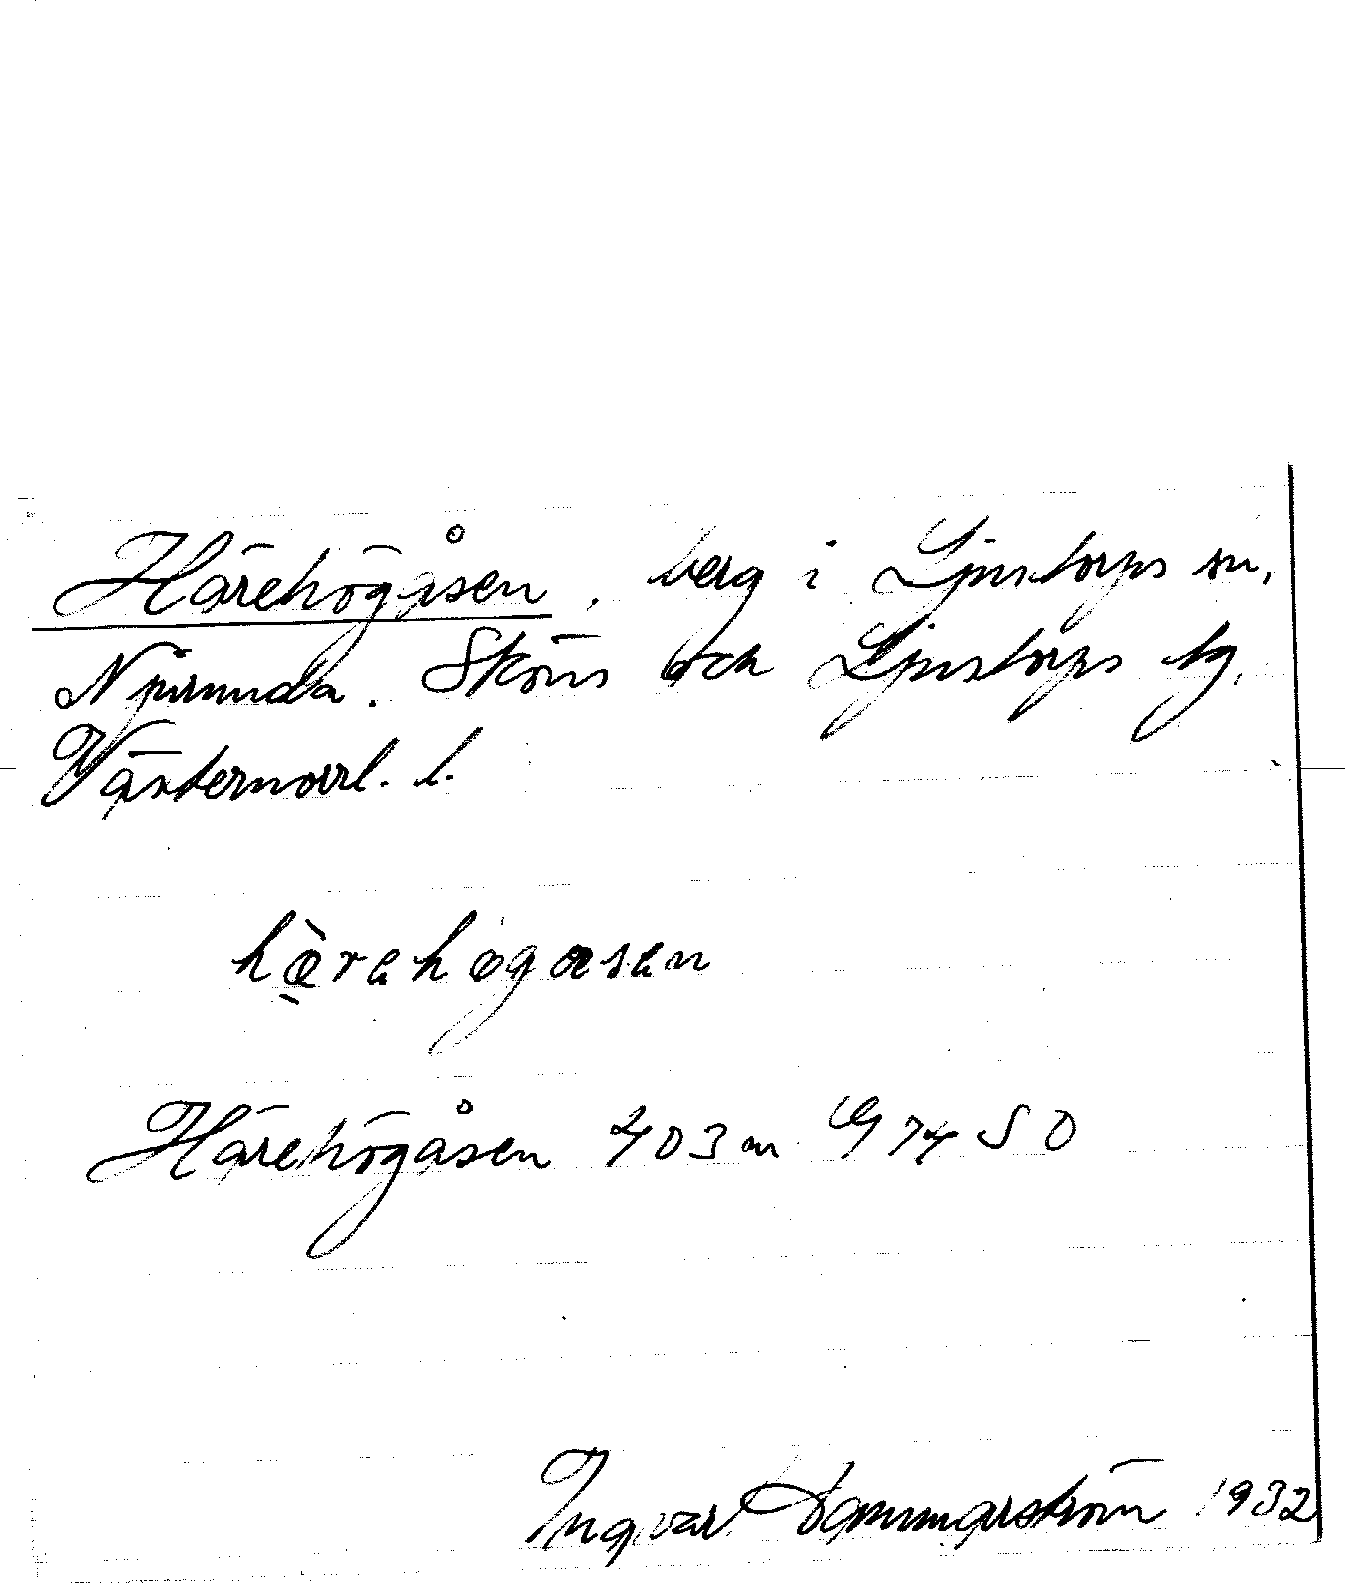 Härehögåsen, berg i Ljustorps sn,
Njurunda, Sköns och Ljustorps tg,
Västernorrl. l.
hàrəhøgåsən
Härehögåsen 403 m G 74 SO
Ingvar Hammarström 1932